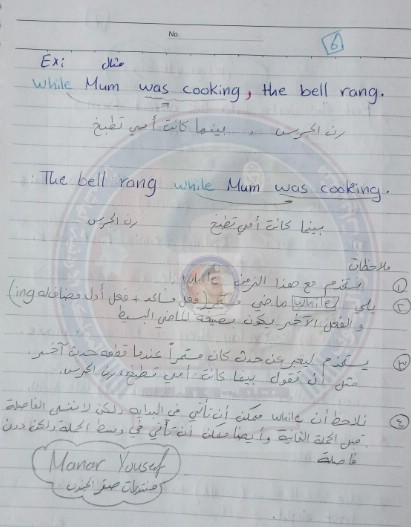 No.
6
Ex: مثال
While Mum was cooking, the bell rang.
بينما كانت أمي تطبخ رن الجرس
The bell rang while Mum was cooking.
رن الجرس بينما كانت أمي تطبخ
ملاحظات
① يستخدم مع هذا الزمن
② يلي while ماضي فعل مساعد + فعل أول مضاف له (ing
و الفعل الآخر يكون بصيغة الماضي البسيط
③ يستخدم ليعبر عن حدث كان مستمراً عندما قطعه حدث آخر
مثل أن نقول بينما كانت أمي تطبخ رن الجرس
④ نلاحظ أن while ممكن أن تأتي في البداية ولكن لا ننسى الفاصلة
قبل الجملة الثانية وأيضاً ممكن أن تأتي في وسط الجملة ولكن دون
فاصلة
Manar Yousef
منتديات صقر الجنوب